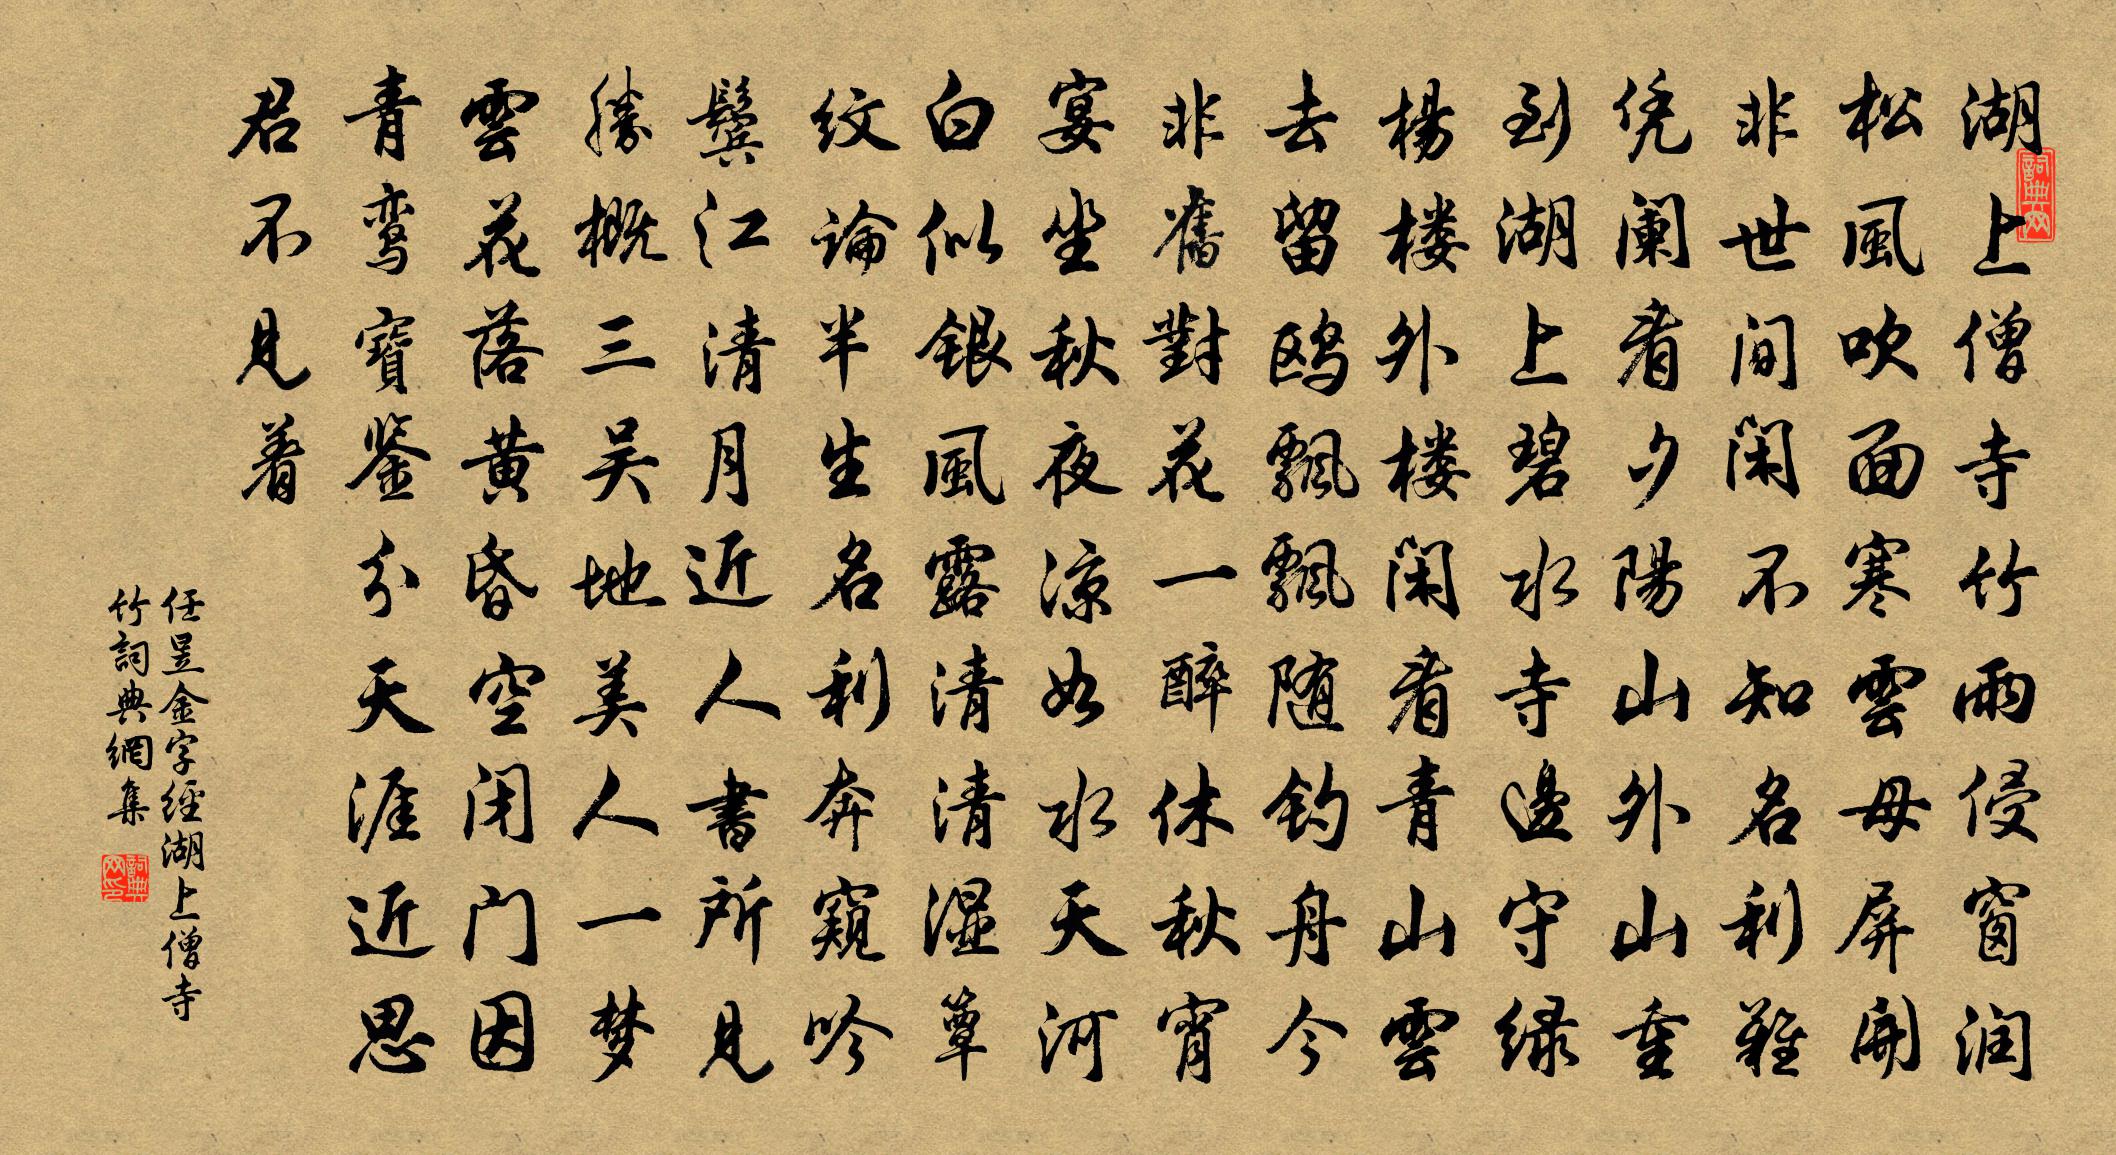 湖上僧寺竹雨侵窗润
松風吹面寒雲母屏開
非世间闲不知名利難
凭阑看夕陽山外山重
到湖上碧水寺邊守绿
楊楼外楼闲看青山雲
去留鸥飘飘随钓舟今
非舊對花一醉休秋宵
宴坐秋夜凉如水天河
白似银風露清清湿簟
纹論半生名利奔窺吟
鬓江清月近人書所見
勝概三吴地美人一梦
雲花落黄昏空闭门因
青鸾寶鉴分天涯近思
君不見着
任昱金字經湖上僧寺
竹詞典網集
詞典网
詞典网印